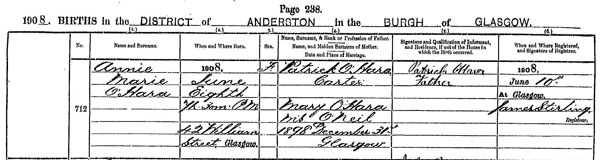 Page 238.
1908. BIRTHS in the DISTRICT of ANDERSTON in the BURGH of GLASGOW.
No.
Name and Surname.
When and Where Born.
Sex.
Name, Surname, & Rank or Profession of Father.
Name, and Maiden Surname of Mother.
Date and Place of Marriage.
Signature and Qualification of Informant, and Residence, if out of the House in which the Birth occurred.
When and Where Registered, and Signature of Registrar.
712
Annie
Marie
O'Hara
1908,
June
Eighth
7h. 0m. P.M.
42 William
Street, Glasgow.
F.
Patrick O'Hara
Carter
Mary O'Hara
M.S. O'Neil
1898 December 31st
Glasgow
Patrick O'Hara
Father
1908,
June 10th
At Glasgow.
James Stirling
Registrar.